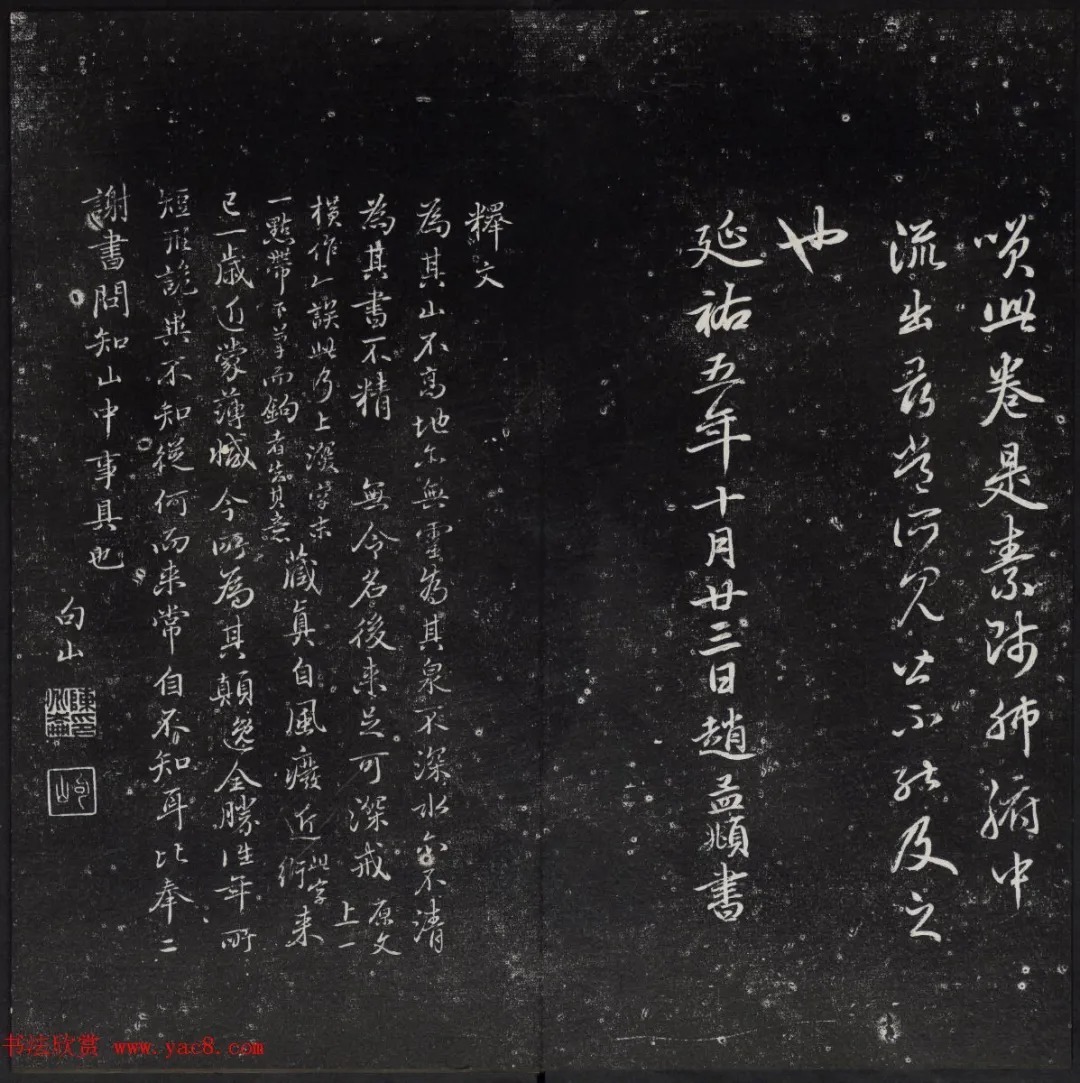 唄此卷是素師肺腑中
流出尋常所見皆不能及之
也
延祐五年十月廿三日趙孟頫書
釋文
為其山不高地亦無靈為其泉不深水亦不清
為其書不精 無令名後來足可深戒 原文
上一
誤此乃上深字末藏真自風癈近 此字衍 來
一點帶下草而鉤者
已一歲近蒙薄減今所為其顛逸全勝往年所
不知從何而來常自不知耳比奉二
謝書問知山中事具也
向山
书法欣赏 www.yac8.com